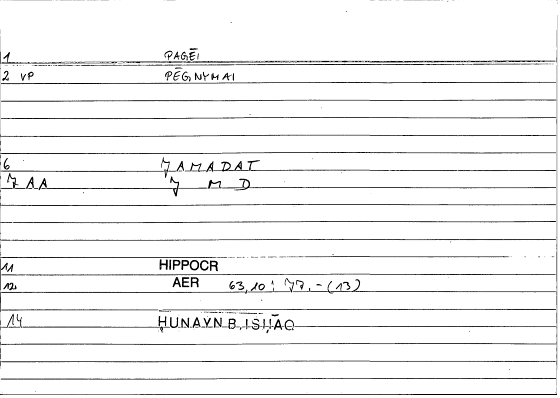 1 PAGĒI
2 VP PĒGNYMAI
6 JAMADAT
7 AA J M D
11 HIPPOCR
12 AER 63,10: 77.-(13)
14 ḤUNAYN B. ISḤĀQ